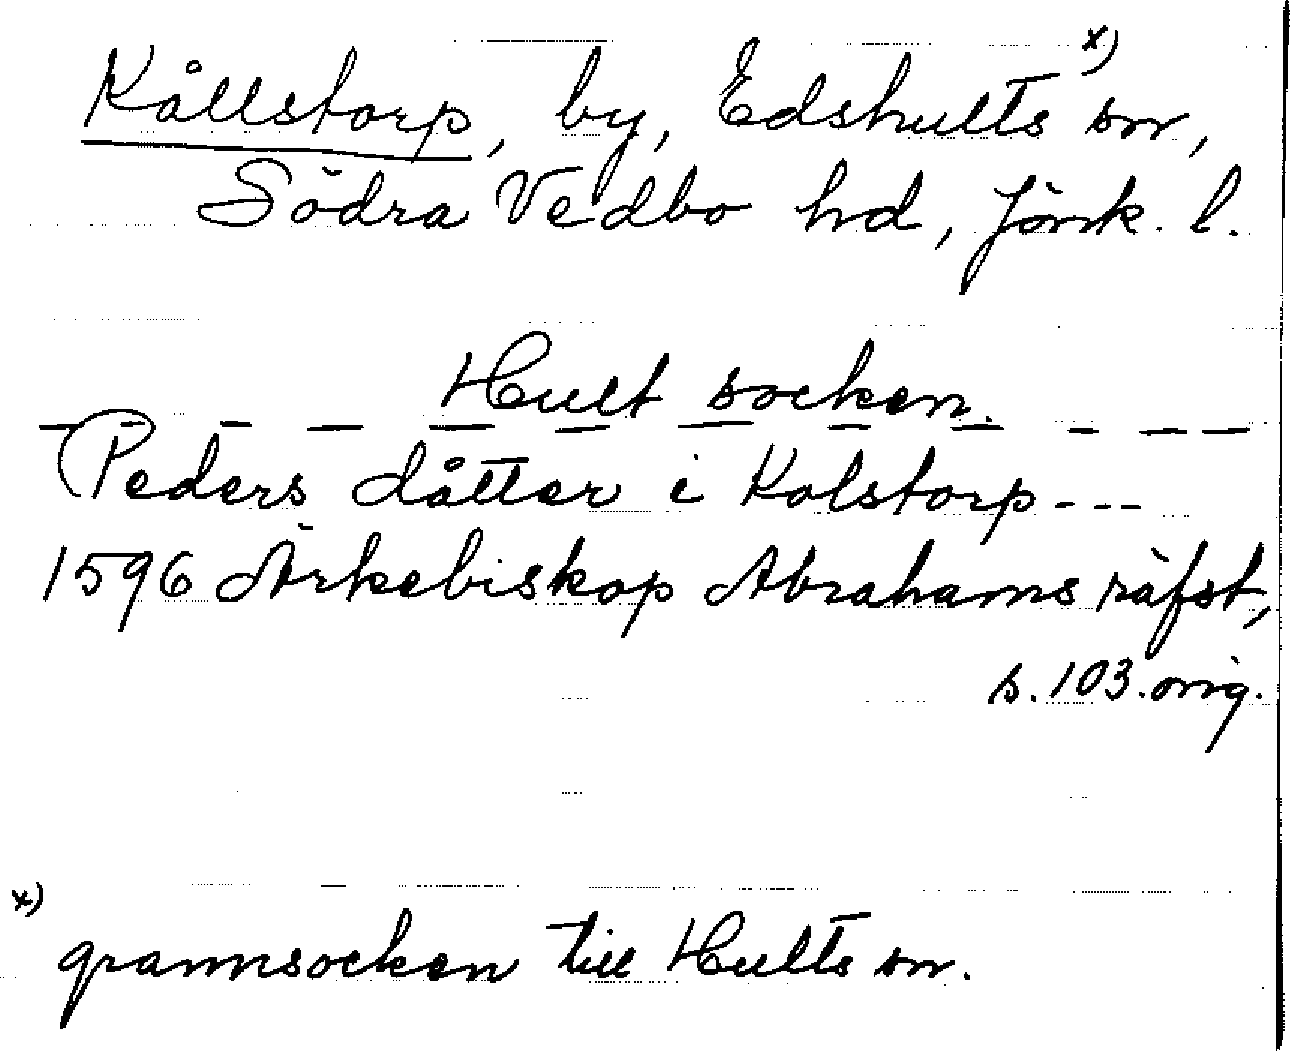 Kållstorp, by, Edshults x) sn,
Södra Vedbo hd, Jönk. l.
Hult socken.
Peders dåtter i Kolstorp ---
1596 Ärkebiskop Abrahams räfst,
s. 103. orig.
x) grannsocken till Hults sn.